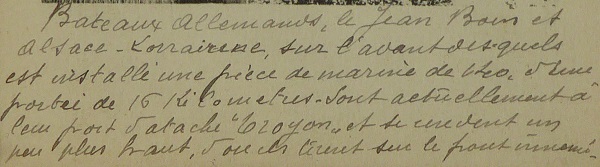 Bateaux Allemands, le Jean Boin et
Alsace-Lorraine, sur l'avant desquels
est installé une pièce de marine de d'une
portée de 16 Kilometres - Sont actuellement à
leur port d'atache "Troyon" et se rendent un
peu plus haut, d'ou ils tirent sur le front